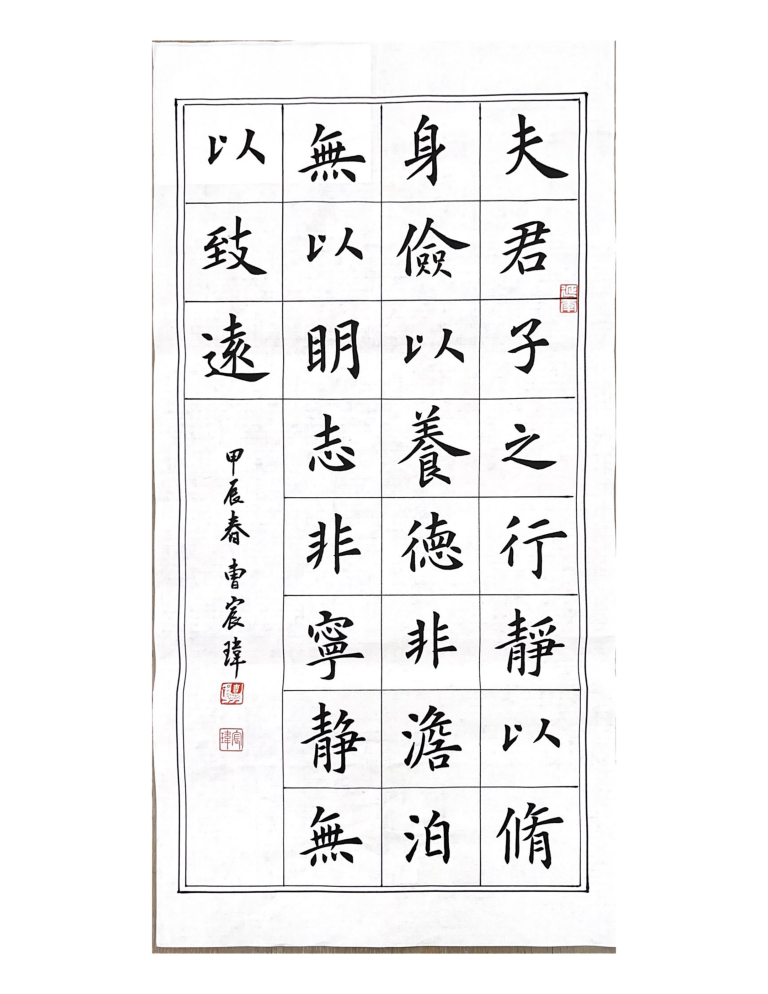 夫君子之行靜以脩
身儉以養德非澹泊
無以明志非寧静無
以致遠
甲辰春 曹宸瑋